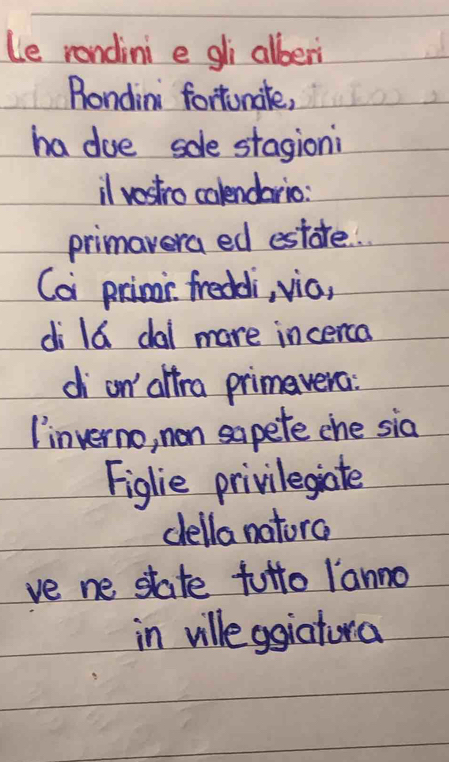 Le rondini e gli alberi
Rondini fortunate,
ha due sole stagioni
il vostro calendario:
primavera ed estate...
Coi primi freddi, via,
di lá dal mare in cerca
di un'altra primavera:
l'inverno, non sapete che sia
Figlie privilegiate
della natura
ve ne state tutto l'anno
in villeggiatura